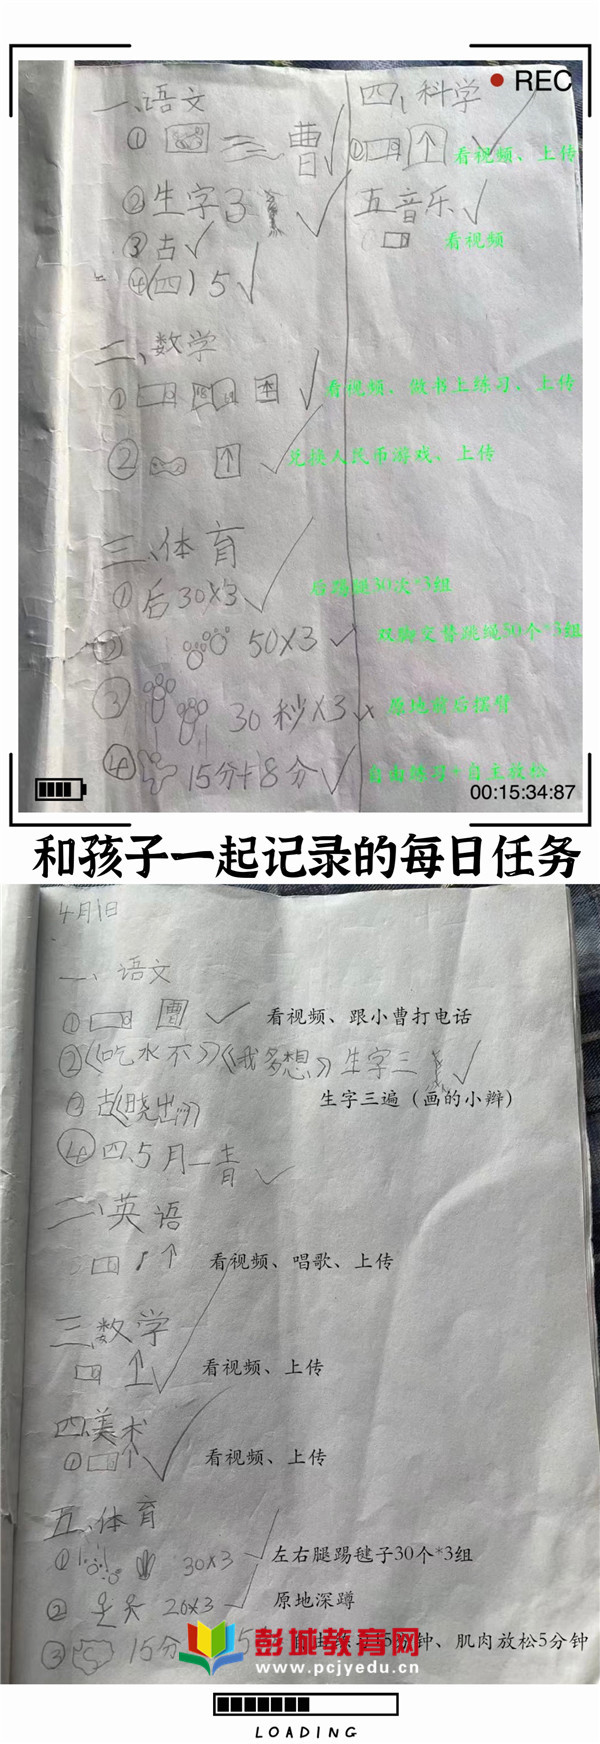 REC
一、语文
① 曹
②生字3
③古
④(四)5
二、数学
①
看视频、做书上练习、上传
②
兑换人民币游戏、上传
三、体育
①后30×3
后踢腿30次*3组
② 50×3
双脚交替跳绳50个*3组
③ 30秒×3
原地前后摆臂
④ 15分+8分
自由练习+自主放松
四、科学
①
看视频、上传
五音乐
看视频
00:15:34:87
和孩子一起记录的每日任务
4月1日
一、语文
① 曹
看视频、跟小曹打电话
②《吃水不》《我多想》生字三
生字三遍（画的小辫）
③古《晓出》
④四、5月一背
二、英语
看视频、唱歌、上传
三数学
看视频、上传
四美术
①
看视频、上传
五、体育
① 30×3
左右腿踢毽子30个*3组
② 20×3
原地深蹲
③ 15分 5
自由练习15分钟、肌肉放松5分钟
彭城教育网
www.pcjyedu.cn
LOADING